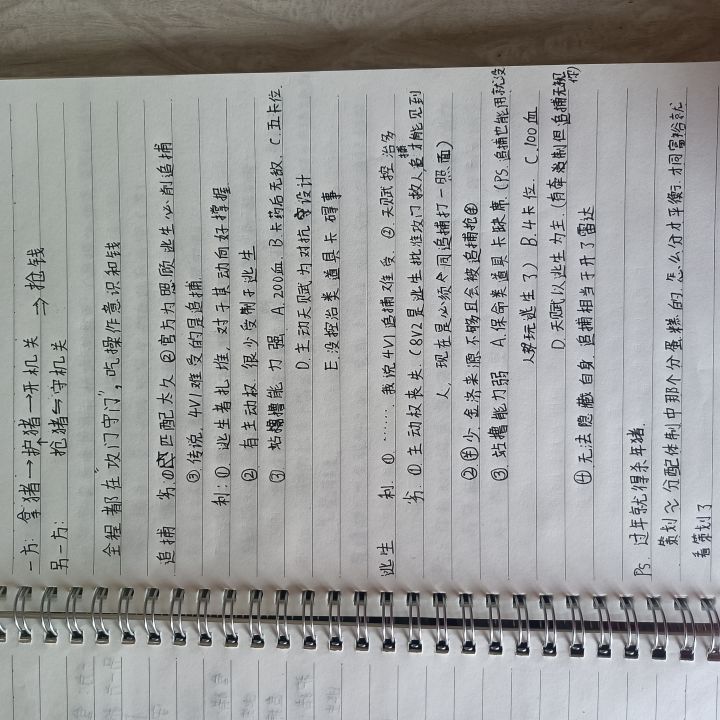 一方: 拿猪→护猪→开机关 ⇒ 抢钱
另一方: 抢猪⇆守机关
全程都在"攻门守门",吃操作意识和钱
追捕 劣:①匹配太久 ②官方为照顾逃生必削追捕
③传说,4V1难受的是追捕.
利:①逃生者扎堆,对于其动向好掌握
② 有主动权 很少受制于逃生
③ 站撸能力强 A.200血. B.卡药后无敌. C.五卡位.
D.主动天赋为对抗设计
E.没控治类道具卡碍事
逃生 利.①……我说4V1追捕难受.②天赋控治多
劣:①主动权丧失.(8V2是逃生批准攻门救人追捕才能见到
人,现在是必须同追捕打一照面)
②少.金条来源不够且会被追捕抢
③站撸能力弱 A.保命类道具卡缺席(PS.追捕也能用就没
人玩逃生了) B.4卡位. C.100血
D.天赋以逃生为主.(有牵制但追捕无视
你)
④无法隐藏自身.追捕相当于开了雷达
Ps.过年就得杀年猪.
策划≈分配体制中那个分蛋糕的.怎么分才平衡.才同富裕就
看策划了